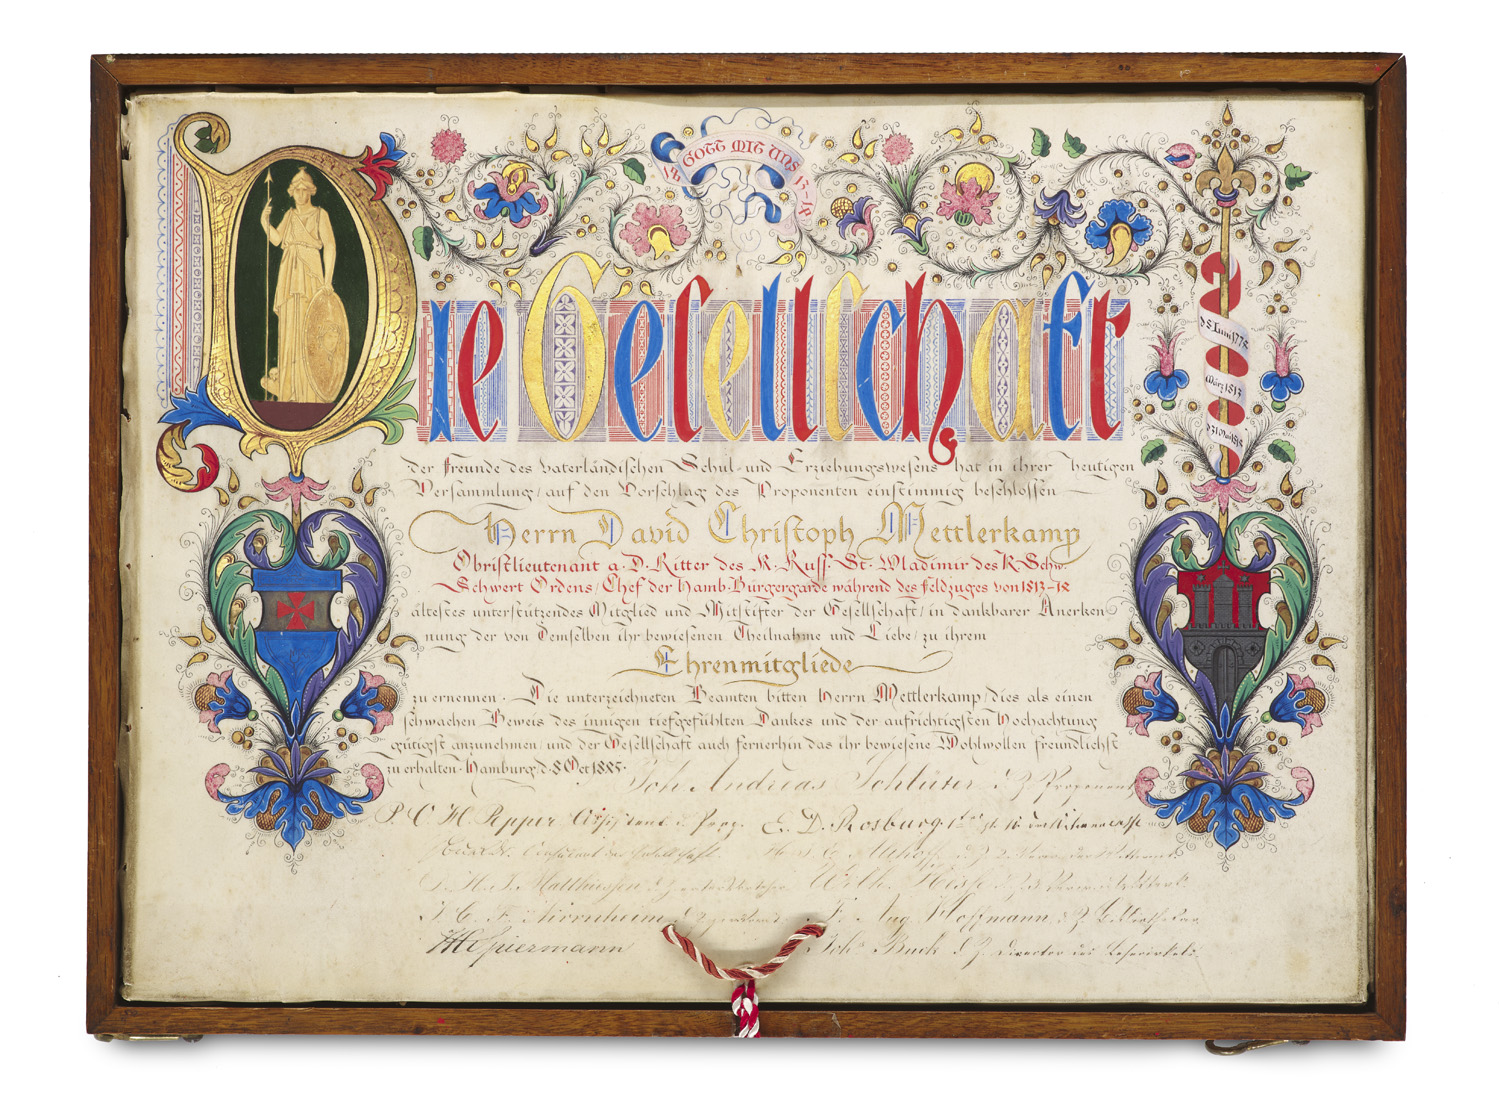 GOTT MIT UNS
18 13-18
Die Gesellschaft
der Freunde des vaterländischen Schul- und Erziehungswesens hat in ihrer heutigen
Versammlung, auf den Vorschlag des Proponenten einstimmig beschlossen
Herrn David Christoph Mettlerkamp
Obristlieutenant a. D. Ritter des K. Russ. St. Wladimir des K. Schw.
Schwert Ordens, Chef der Hamb. Bürgergarde während des Feldzuges von 1813-18
ältestes unterstützendes Mitglied und Mitstifter der Gesellschaft, in dankbarer Anerken
nung der von Demselben ihr bewiesenen Theilnahme und Liebe, zu ihrem
Ehrenmitgliede
zu ernennen. Die unterzeichneten Beamten bitten Herrn Mettlerkamp, dies als einen
schwachen Beweis des innigen tiefgefühlten Dankes und der aufrichtigsten Hochachtung
gütigst anzunehmen, und der Gesellschaft auch fernerhin das ihr bewiesene Wohlwollen freundlichst
zu erhalten. Hamburg, d. 8 Oct
Joh Andreas Schlüter d. Z. Proponent
P. C. H. Pepper Assistent d. Prop. E. D. Rosburg
Consulent der Gesellschaft
J. H. J. Matthiessen d. Z. Wilh. Hesse d. Z.
J. C. F. Nirrnheim d. Z. F. Aug. Hoffmann d. Z. Bibliothekar
Spiermann Joh. Buck d. Z. Director des Lesezirkels.
März 1813